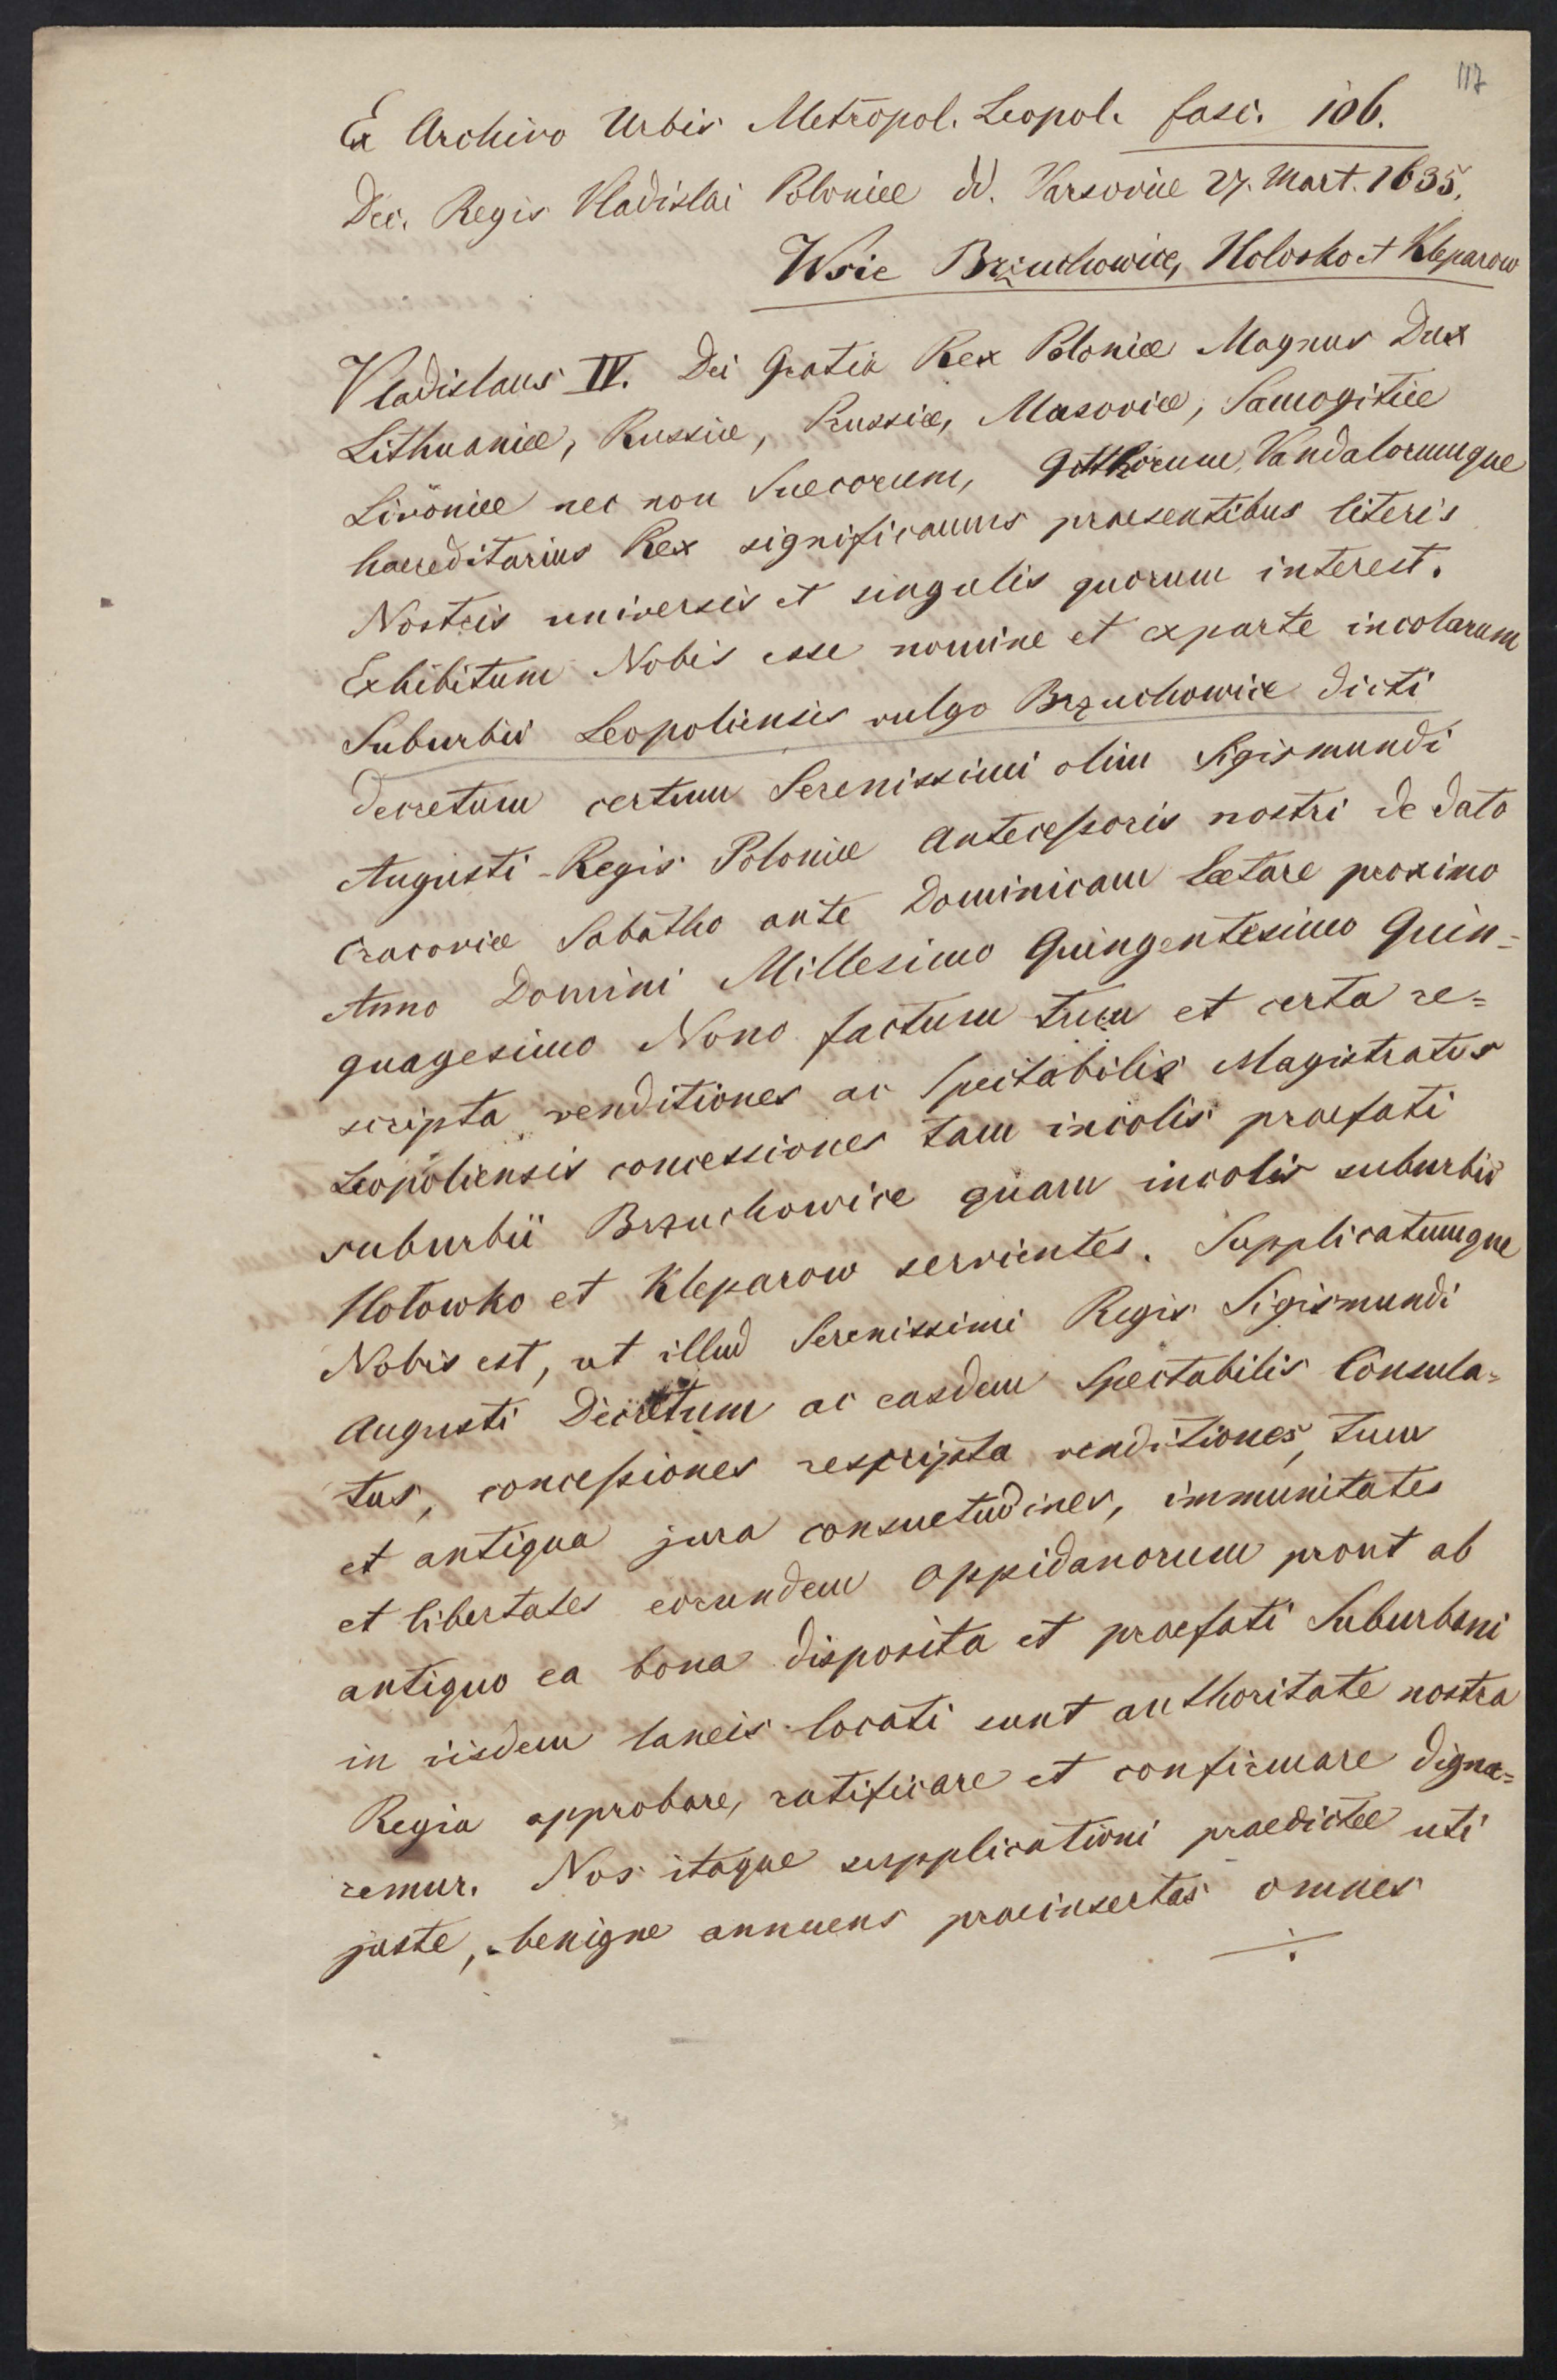 117
Ex Archivo Urbis Metropol. Leopol. fasc. 106.
Dec. Regis Vladislai Poloniæ dd. Varsoviæ 27. Mart. 1635.
Wsie Brzuchowice, Holosko et Kleparow
Vladislaus IV. Dei Gratia Rex Poloniæ Magnus Dux
Lithuaniæ, Russiæ, Prussiæ, Masoviæ, Samogitiæ
Livoniæ nec non Suecorum, Gotthorum, Vandalorumque
haereditarius Rex significamus praesentibus literis
Nostris universis et singulis quorum interest.
Exhibitum Nobis esse nomine et exparte incolarum
Suburbii Leopoliensis vulgo Brzuchowice dicti
decretum certum Serenissimi olim Sigismundi
Augusti Regis Poloniæ Antecessoris nostri de dato
Cracoviæ Sabatho ante Dominicam Lætare proximo
Anno Domini Millesimo Quingentesimo Quin=
quagesimo Nono factum tum et certa re=
scripta venditiones ac Spectabilis Magistratus
Leopoliensis concessiones tam incolis praefati
suburbii Brzuchowice quam incolis suburbii
Hołowko et Kleparow servientes. Supplicatumque
Nobis est, ut illud Serenissimi Regis Sigismundi
Augusti Decretum ac easdem Spectabilis Consula=
tus, concessiones rescripta venditiones, tum
et antiqua jura consuetudines, immunitates
et libertates eorundem oppidanorum prout ab
antiquo ea bona disposita et praefati Suburbani
in iisdem laneis locati sunt authoritate nostra
Regia approbare, ratificare et confirmare digna=
remur. Nos itaque supplicationi praedictæ uti
juste, benigne annuens praeinsertas omnes